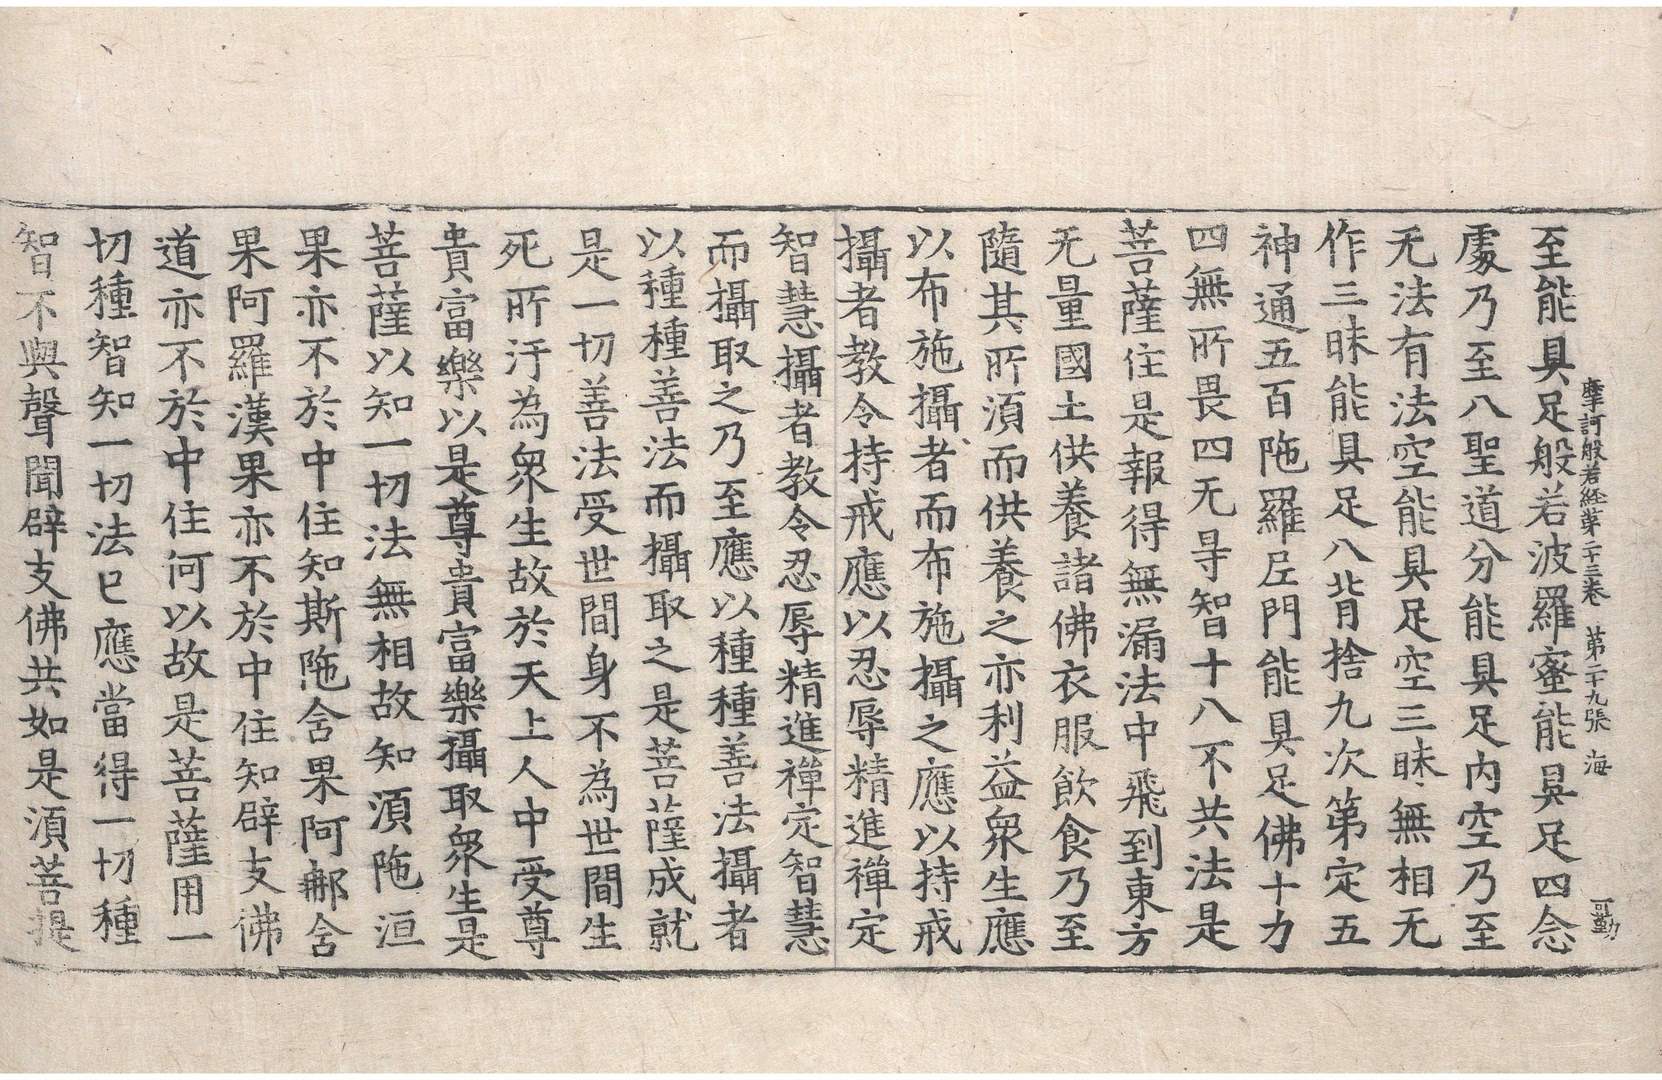 摩訶般若経第二十三卷 第二十九張 海
至能具足般若波羅蜜能具足四念
處乃至八聖道分能具足内空乃至
无法有法空能具足空三昧無相无
作三昧能具足八背捨九次第定五
神通五百陁羅尼門能具足佛十力
四無所畏四无导智十八不共法是
菩薩住是報得無漏法中飛到東方
无量國土供養諸佛衣服飲食乃至
隨其所湏而供養之亦利益衆生應
以布施攝者而布施攝之應以持戒
攝者教令持戒應以忍辱精進禪定
智慧攝者教令忍辱精進禪定智慧
而攝取之乃至應以種種善法攝者
以種種善法而攝取之是菩薩成就
是一切善法受世間身不為世間生
死所汙為衆生故於天上人中受尊
貴富樂以是尊貴富樂攝取衆生是
菩薩以知一切法無相故知湏陁洹
果亦不於中住知斯陁含果阿那含
果阿羅漢果亦不於中住知辟支佛
道亦不於中住何以故是菩薩用一
切種智知一切法已應當得一切種
智不與聲聞辟支佛共如是湏菩提